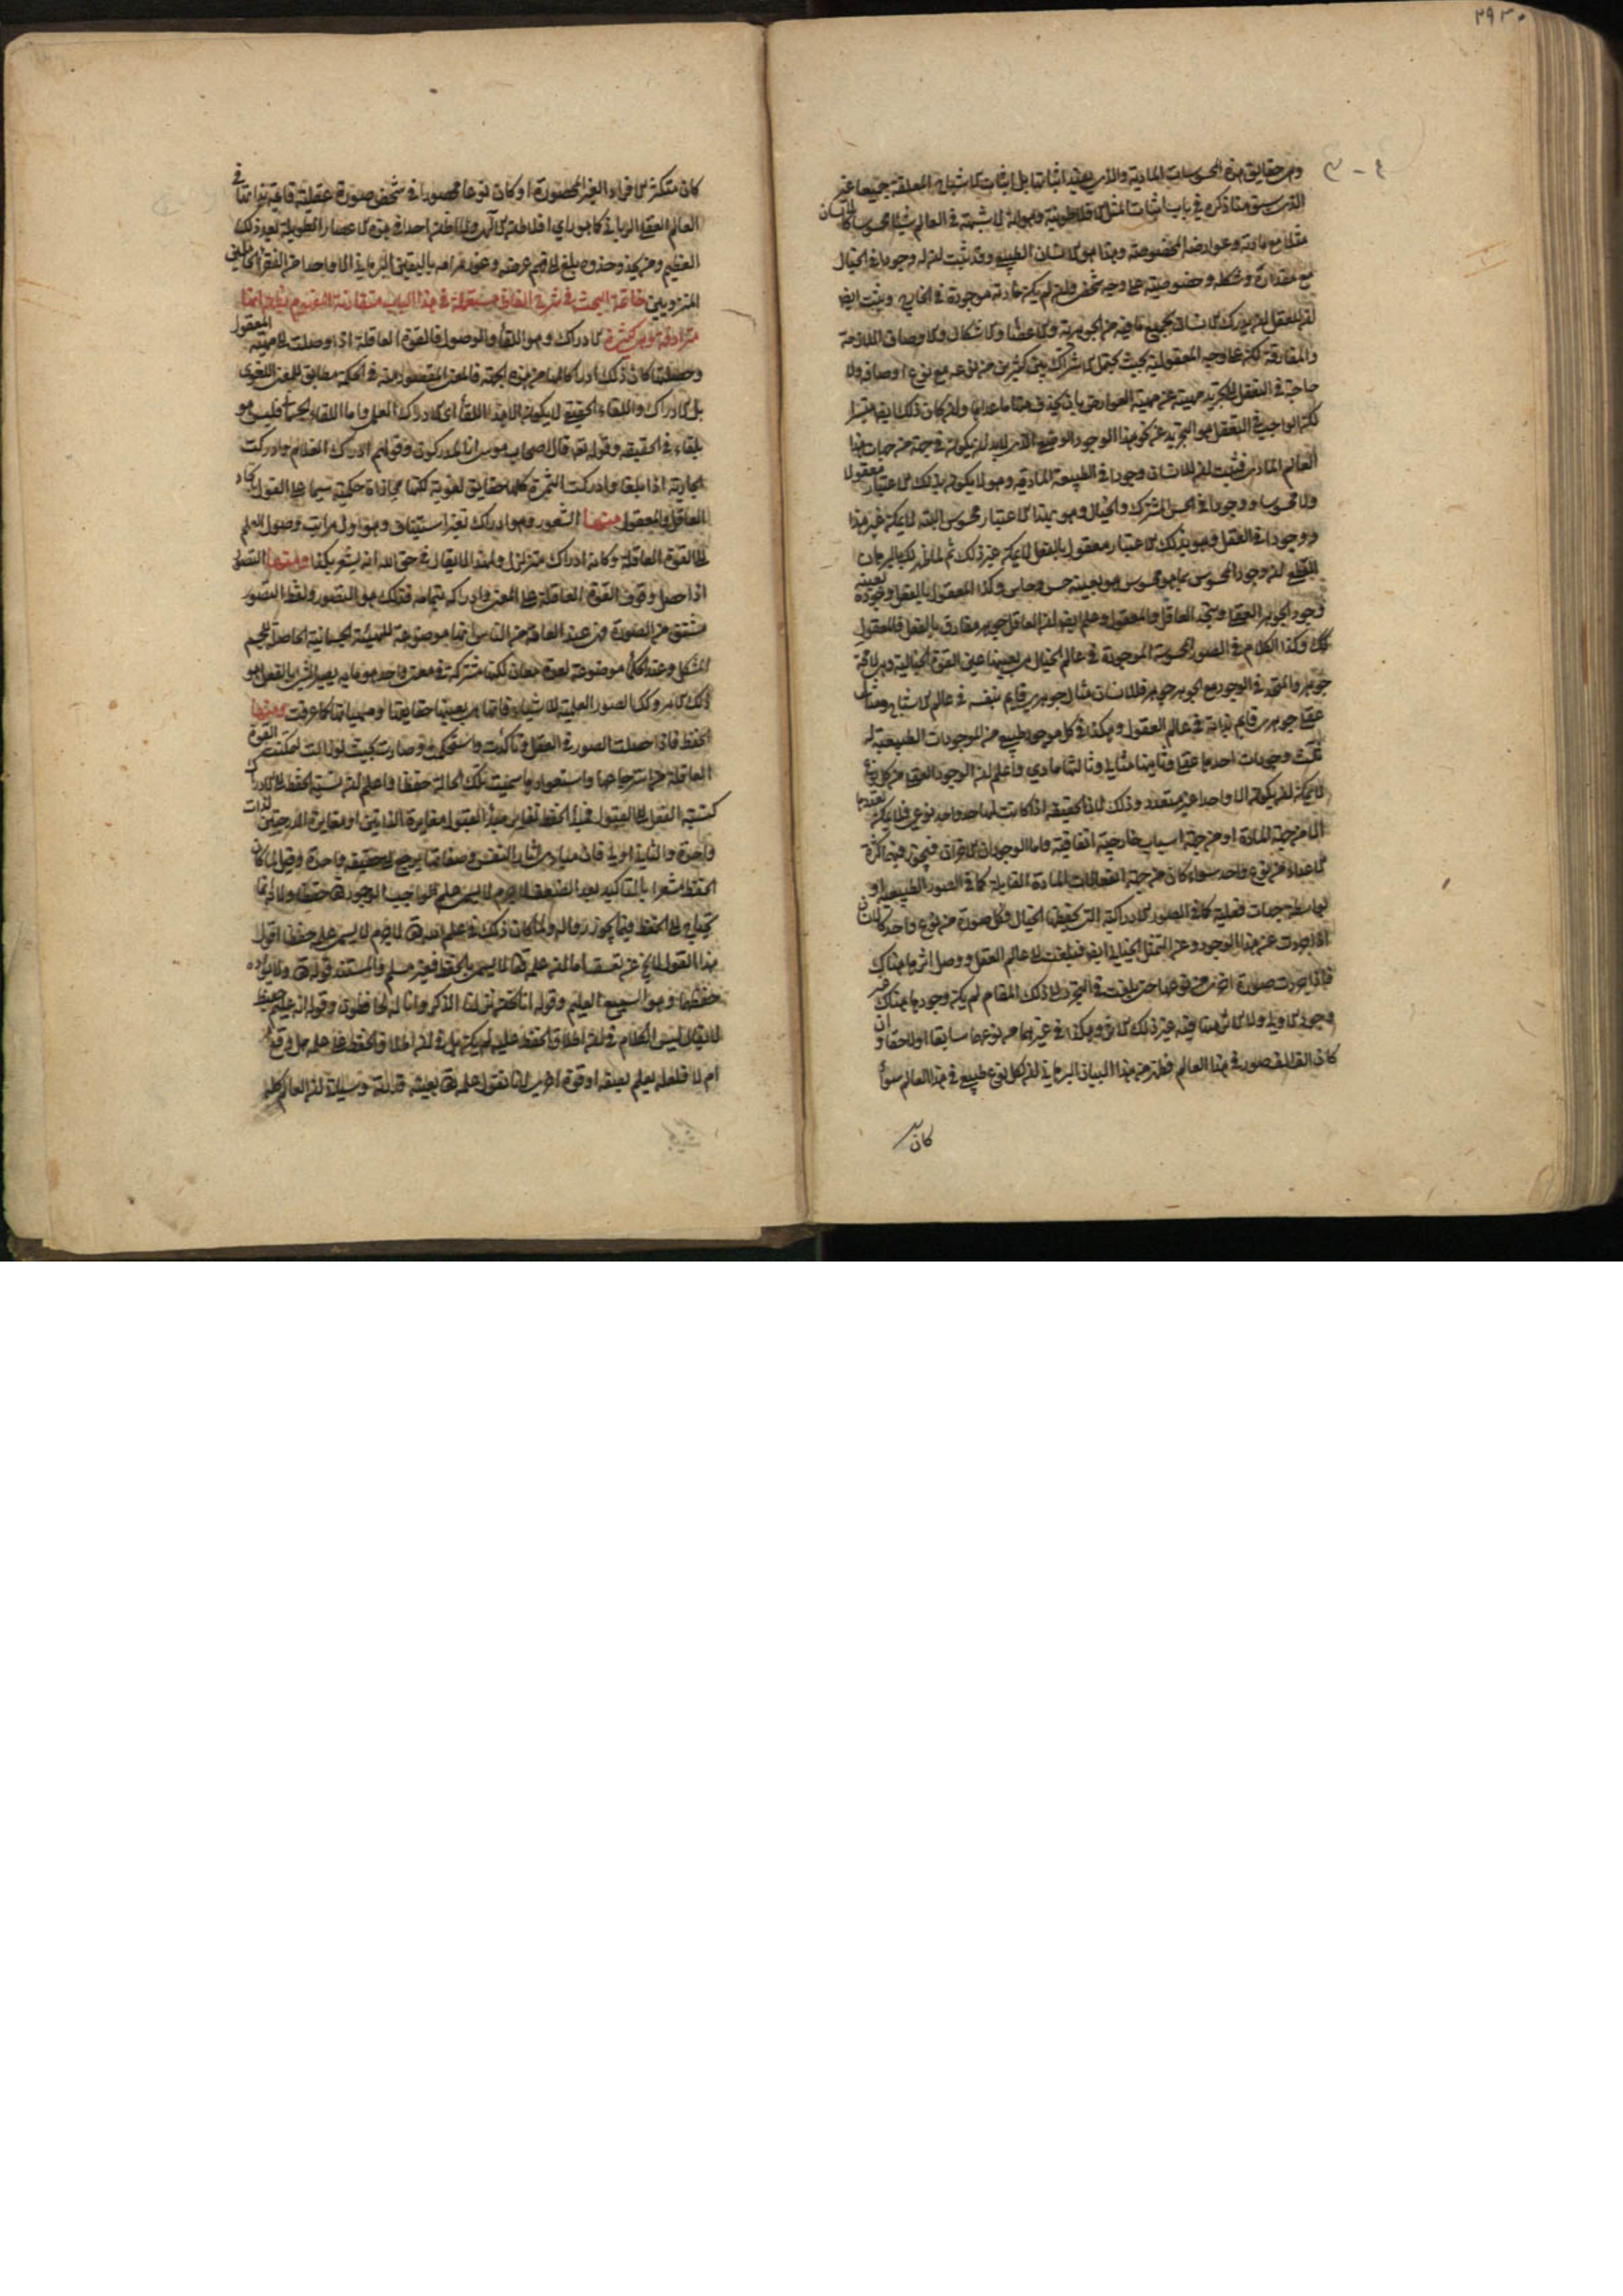 ٢٩٣٠
٤-٣
وهي حقايق هذه المحسوسات المادية والذي يفيد اثباتها بل اثبات الاشباح المعلقة جميعا غير
الذي سبق منا ذكره في باب اثبات المثل الافلاطونية هو انه لا شبهة في العالم شيئا محسوسا كالانسان
مثلا مع مادته وعوارضه المخصوصة وهذا هو الانسان الطبيعي وقد ثبت ان له وجودا في الخيال
مع مقداره وشكله وخصوصيته على وجه شخصي وان لم يكن مادته موجودة في الخارج وثبت ايضا
ان للعقل ان يدرك الانسان بجميع ما فيه من الجوهرية والاعضاء والاشكال والاوصاف اللازمة
والمفارقة لكن على وجه المعقولية بحيث يحتمل الاشتراك بين كثيرين من نوعه مع نوع اوصافه ولا
حاجة في التعقل الى تجريد مهيته عن مهية العوارض بان يحذف منها ما عداها وان كان ذلك ايضا ميسرا
لكن الواجب في التعقل هو التجريد عن نحو هذا الوجود الوضعي الذي لا بد ان يكون في جهة من جهات هذا
العالم المادي فثبت ان للانسان وجودا في الطبيعة المادية وهو لا يكون بذلك الاعتبار معقولا
ولا محسوسا ووجودا في الحس المشترك والخيال وهو بهذا الاعتبار محسوس البتة لا يمكن غير هذا
ووجودا في العقل وهو بذلك الاعتبار معقول بالفعل لا يمكن غير ذلك ثم ان لك بالبرهان
القطعي ان وجود المحسوس بما هو محسوس هو بعينه حس وحاس وكذا المعقول بالفعل وجوده بعينه
وجود الجوهر العقلي ويتحد العاقل والمعقول وعلم ايضا ان العاقل جوهر مفارق بالفعل فالمعقول
كك وكذا الكلام في الصور المحسوسة الموجودة في عالم الخيال هي بعينها عين القوة الخيالية وهي لا محة
جوهر والمتحد في الوجود مع الجوهر جوهر فللانسان مثال جوهري قايم بنفسه في عالم الاشباح ومثال
عقلي جوهري قايم بذاته في عالم العقول وهكذا في كل موجود طبيعي من الموجودات الطبيعية له
ثلث وجودات احدها عقلي وثانيها مثالي وثالثها مادي واعلم ان الوجود العقلي من كل نوع
لا يمكن ان يكون الا واحدا غير متعدد وذلك لان الحقيقة اذا كانت لها حد واحد نوعي فلا يمكن تعددها
الا من جهة المادة او من جهة اسباب خارجية اتفاقية واما الوجودان الاخران فيجوز فيهما كثرة
الاعداد من نوع واحد سواء كان من جهة انفعالات المادة القابلة كما في الصور الطبيعية او
بواسطة جهات فعلية كما في الصور الادراكية التي يحفظها الخيال فكل صورة من نوع واحد كالانسان
اذا جردت عن هذا الوجود وعن التمثل الخيالي ايضا فبلغت الى عالم العقل ووصل اثرها هناك
فاذا جردت صورة اخرى من نوعها حتى بلغت في التجرد الى ذلك المقام لم يكن وجودها هناك غير
وجود الاولى ولا الاثر منها فيه غير ذلك الاثر وهكذا في غيرهما من نوعها سابقا او لاحقا وان
كان الف الف صورة في هذا العالم فظهر من هذا البيان البرهاني ان لكل نوع طبيعي في هذا العالم سواء
كان
كان متكثر الافراد الغير المحصورة او كان نوعا محصورا في شخص صورة عقلية قايمة بذاتها في
العالم العقلي الرباني كما هو راي افلاطن الالهي ولا اظن احدا في هذه الاعصار الطويلة بعد ذلك
العظيم ومن يحذو حذوه بلغ الى فهم غرضه وغور مرامه باليقين البرهاني الا واحدا من الفقراء الخاملين
المنزويين خاتمة البحث في شرح الفاظ مستعملة في هذا الباب متقاربة المفهوم يظن انها
مترادفة هي كثيرة الادراك وهو اللقاء والوصول فالقوة العاقلة اذا وصلت الى مهية المعقول
وحصلتها كان ذلك ادراكا لها من هذه الجهة فالمعنى المقصود منه في الحكمة مطابق للمعنى اللغوي
بل الادراك واللقاء الحقيقي لا يكون الا هذا اللقاء اي الادراك العلمي واما اللقاء الجسماني فليس هو
بلقاء في الحقيقة وقوله تعالى قال اصحاب موسى انا لمدركون وقولهم ادرك الغلام وادركت
الجارية اذا بلغا وادركت الثمرة كلها حقايق لغوية لكنها مجازات حكمية سيما على القول باتحاد
العاقل والمعقول ومنها الشعور وهو ادراك بغير استثبات وهو اول مراتب وصول العلم
الى القوة العاقلة وكانه ادراك متزلزل ولهذا لا يقال في حق الله انه يشعر بكذا ومنها التصور
اذا حصل وقوف القوة العاقلة على المعنى وادركه بتمامه فذلك هو التصور ولفظ التصور
مشتق من الصورة وهي عند العامة من الناس انها موضوعة للهيئة الجسمانية الحاصلة للجسم
المشكل وعند الحكماء موضوعة لعدة معان لكنها مشتركة في معنى واحد هو ما به يصير الشيء بالفعل هو
ذلك الامر وكك الصور العلمية للاشياء فانها هي بعينها حقايقها ومهياتها كما عرفت ومنها
الحفظ فاذا حصلت الصور في العقل وتاكدت واستحكمت وصارت بحيث لو زالت لتمكنت القوة
العاقلة من استرجاعها واستعوادها سميت تلك الحالة حفظا واعلم ان نسبة الحفظ الى الادراك
كنسبة الفعل الى القبول فمبدأ الحفظ تغاير مبدأ القبول مغايرة الذاتين او مغايرة الدرجتين لذات
واحدة والثانية اولى فان مبادي اثار النفس وصفاتها يرجع الى حقيقة واحدة وقيل لما كان
الحفظ مشعرا بالتاكيد بعد الضعف لا جرم لا يسمى علم الواجب الوجود تعالى حفظا ولانه انما
يحتاج الى الحفظ فيما يجوز زواله ولما كان ذلك في علم الله محالا لا جرم لا يسمى علمه حفظا اقول
هذا القول لا يخ عن تعسف اما ان علمه تعالى لا يسمى بالحفظ فغير مسلم والمستند قوله تعالى ولا يؤده
حفظهما وهو السميع العليم وقوله انا نحن نزلنا الذكر وانا له لحافظون وقوله انه عليم حفيظ
لا يقال ليس الكلام في ان اطلاق الحفظ عليه لم يكن بل في ان اطلاق الحفظ على علمه هل وقع
ام لا فلعله يعلم بعلمه او قوة اخرى لانا نقول علمه تعالى بعينه قدرته وسيلة ان العالم كله